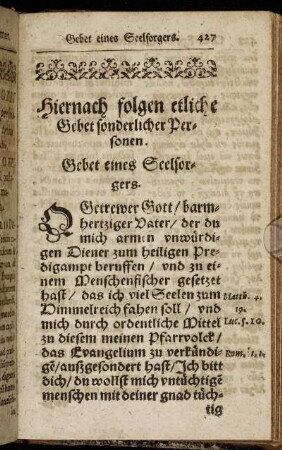 Gebet eines Seelsorgers. 427
Hiernach folgen etliche
Gebet sonderlicher Per-
sonen.
Gebet eines Seelsor-
gers.
O Getrewer Gott/ barm-
hertziger Vater/ der du
mich armen vnwürdi-
gen Diener zum heiligen Pre-
digampt beruffen/ vnd zu ei-
nem Menschenfischer gesetzet
hast/ das ich viel Seelen zum Matth. 4.
Himmelreich fahen soll/ vnd 19.
mich durch ordentliche Mittel Luc. 5. 10.
zu diesem meinen Pfarrvolck/
das Evangelium zu verkündi- Rom. 1. 1.
gē/ außgesondert hast/ Ich bitt
dich/ du wollst mich vntüchtigē
menschen mit deiner gnad tüch-
tig